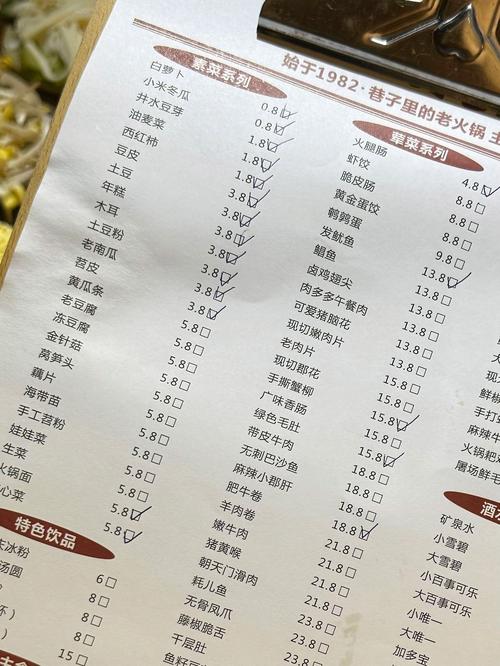 始于1982·巷子里的老火锅
素菜系列
白萝卜
小米冬瓜
井水豆芽
油麦菜
西红柿
豆皮
土豆
年糕
木耳
土豆粉
老南瓜
苕皮
黄瓜条
老豆腐
冻豆腐
金针菇
莴笋头
藕片
海带苗
手工苕粉
娃娃菜
生菜
火锅面
心菜
0.8
0.8
1.8
1.8
1.8
3.8
3.8
3.8
3.8
3.8
3.8
3.8
5.8
5.8
5.8
5.8
5.8
5.8
5.8
5.8
5.8
5.8
5.8
特色饮品
冰粉
汤圆
6
8
8
15
荤菜系列
火腿肠
虾饺
脆皮肠
黄金蛋饺
鹌鹑蛋
发鱿鱼
鲳鱼
卤鸡翅尖
肉多多午餐肉
可爱猪脑花
现切嫩肉片
老肉片
现切郡花
手撕蟹柳
广味香肠
绿色毛肚
带皮牛肉
无刺巴沙鱼
麻辣小郡肝
肥牛卷
羊肉卷
嫩牛肉
猪黄喉
朝天门滑肉
耗儿鱼
无骨凤爪
藤椒脆舌
千层肚
4.8
8.8
8.8
8.8
9.8
13.8
13.8
13.8
13.8
13.8
13.8
15.8
15.8
15.8
15.8
18.8
18.8
18.8
18.8
21.8
21.8
21.8
21.8
23.8
23.8
23.8
鲜椒
手打
麻辣牛
火锅粑
屠场鲜毛
酒
矿泉水
小雪碧
大雪碧
小百事可乐
大百事可乐
小唯一
大唯一
加多宝